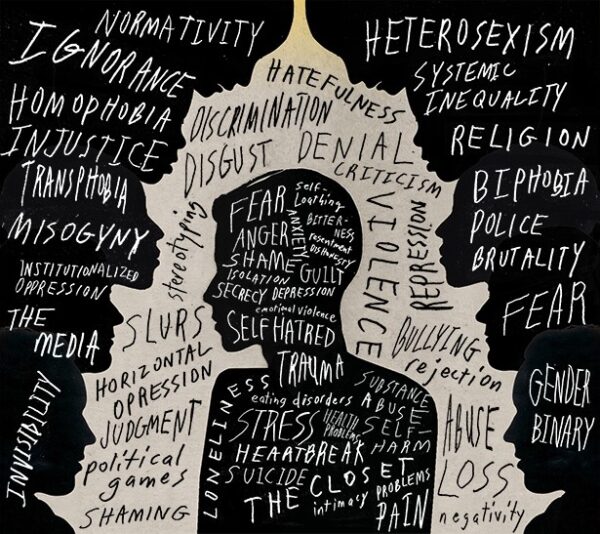 NORMATIVITY
IGNORANCE
HOMOPHOBIA
INJUSTICE
TRANSPHOBIA
MISOGYNY
INSTITUTIONALIZED
OPPRESSION
THE
MEDIA
INVISIBILITY
HATEFULNESS
DISCRIMINATION
DISGUST
DENIAL
CRITICISM
stereotyping
VIOLENCE
REPRESSION
SLURS
HORIZONTAL
OPRESSION
JUDGMENT
political
games
SHAMING
BULLYING
rejection
ABUSE
LOSS
negativity
FEAR
self-
Loathing
ANGER
ANXIETY
BITTER-
NESS
resentment
DISHONESTY
SHAME
GUILT
ISOLATION
SECRECY
DEPRESSION
emotional violence
SELF HATRED
TRAUMA
LONELINESS
eating disorders
SUBSTANCE
ABUSE
STRESS
HEALTH
PROBLEMS
SELF-
HARM
HEARTBREAK
SUICIDE
THE CLOSET
intimacy
PROBLEMS
PAIN
HETEROSEXISM
SYSTEMIC
INEQUALITY
RELIGION
BIPHOBIA
POLICE
BRUTALITY
FEAR
GENDER
BINARY